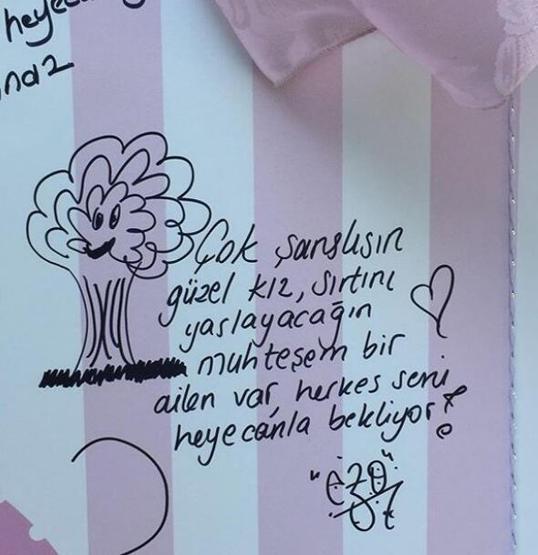 naz
Çok şanslısın
güzel kız, sırtını
yaslayacağın
muhteşem bir
ailen var, herkes seni
heyecanla bekliyor!
"ezo"